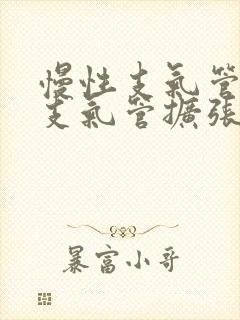 慢性支氣管
支氣管擴張
暴富小哥